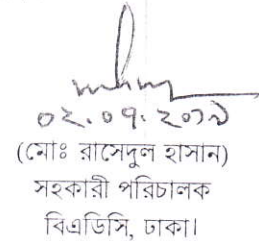 ০২.০৭.২০১৯
(মোঃ রাসেদুল হাসান)
সহকারী পরিচালক
বিএডিসি, ঢাকা।